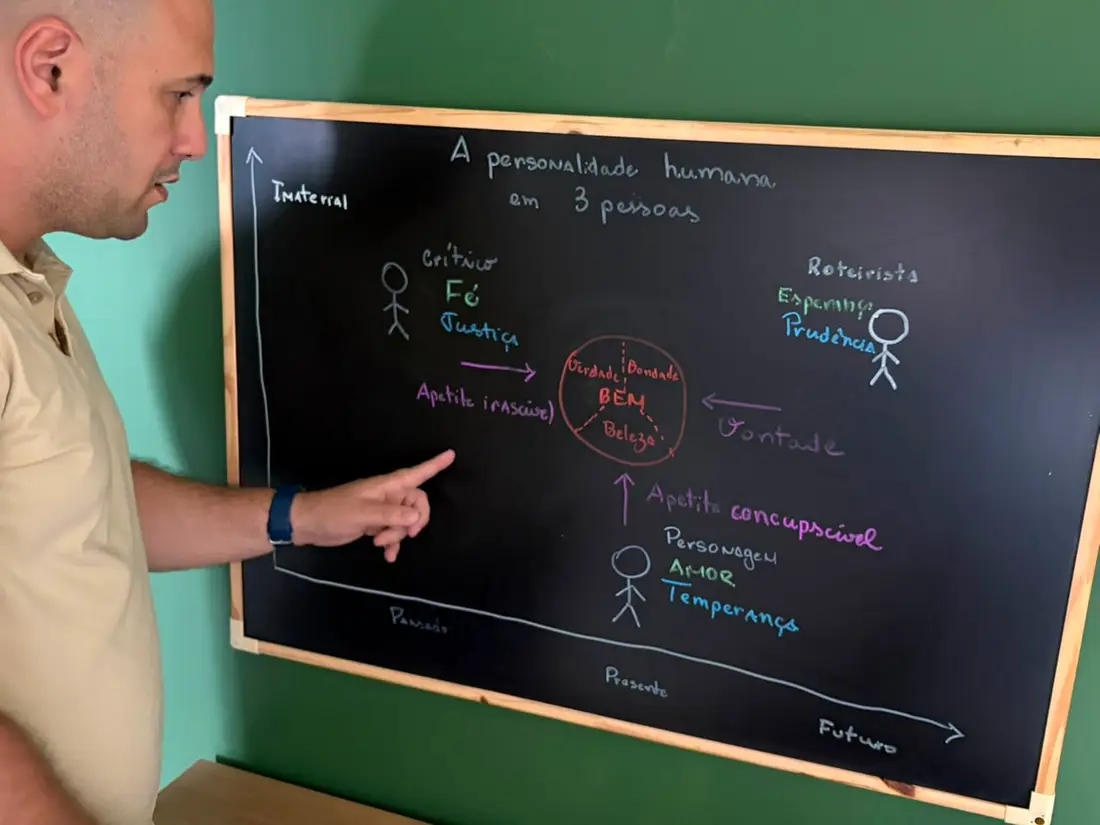 A personalidade humana
em 3 pessoas
Imaterial
Crítico
Fé
Justiça
Apetite irascível
Roteirista
Esperança
Prudência
Verdade Bondade
BEM
Beleza
Vontade
Apetite concupscível
Personagem
AMOR
Temperança
Passado
Presente
Futuro